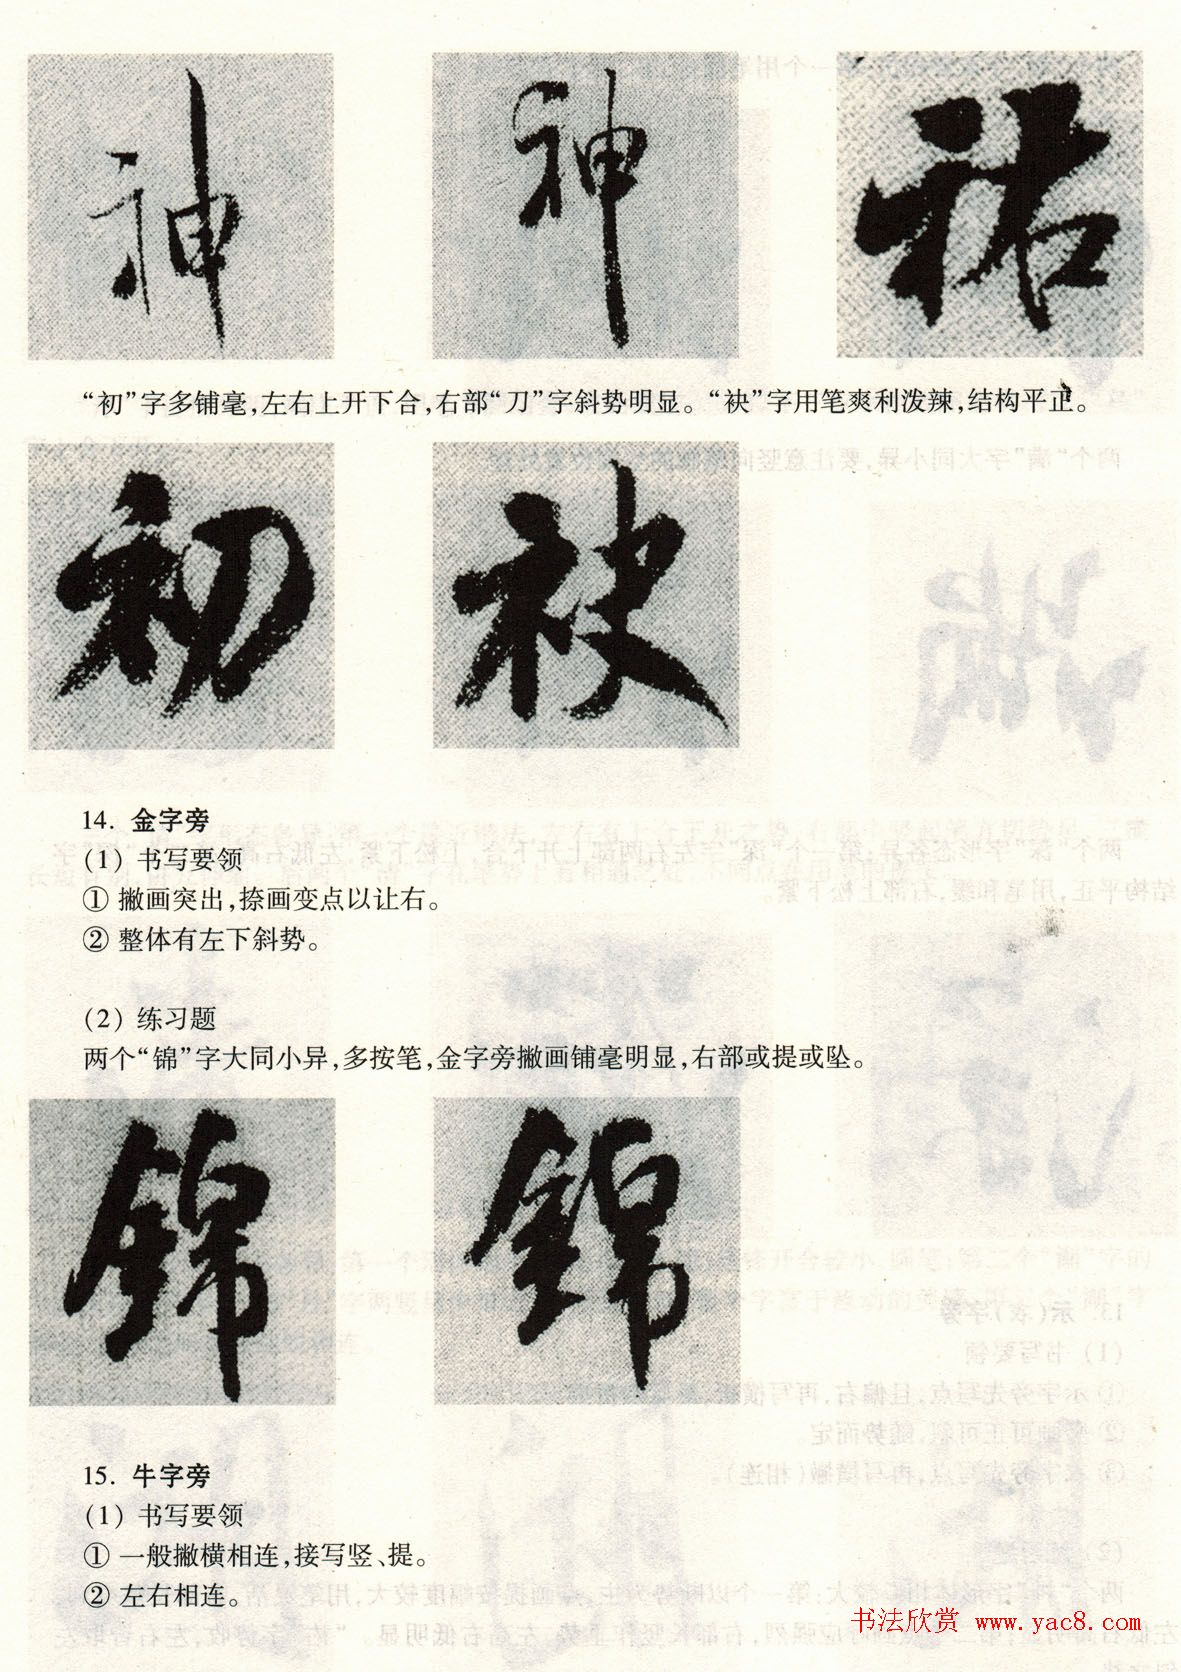 神 神 祐
“初”字多铺毫,左右上开下合,右部“刀”字斜势明显。“袂”字用笔爽利泼辣,结构平正。
初 袂
14. 金字旁
(1) 书写要领
① 撇画突出,捺画变点以让右。
② 整体有左下斜势。
(2) 练习题
两个“锦”字大同小异,多按笔,金字旁撇画铺毫明显,右部或提或坠。
锦 锦
15. 牛字旁
(1) 书写要领
① 一般撇横相连,接写竖、提。
② 左右相连。
书法欣赏 www.yac8.com